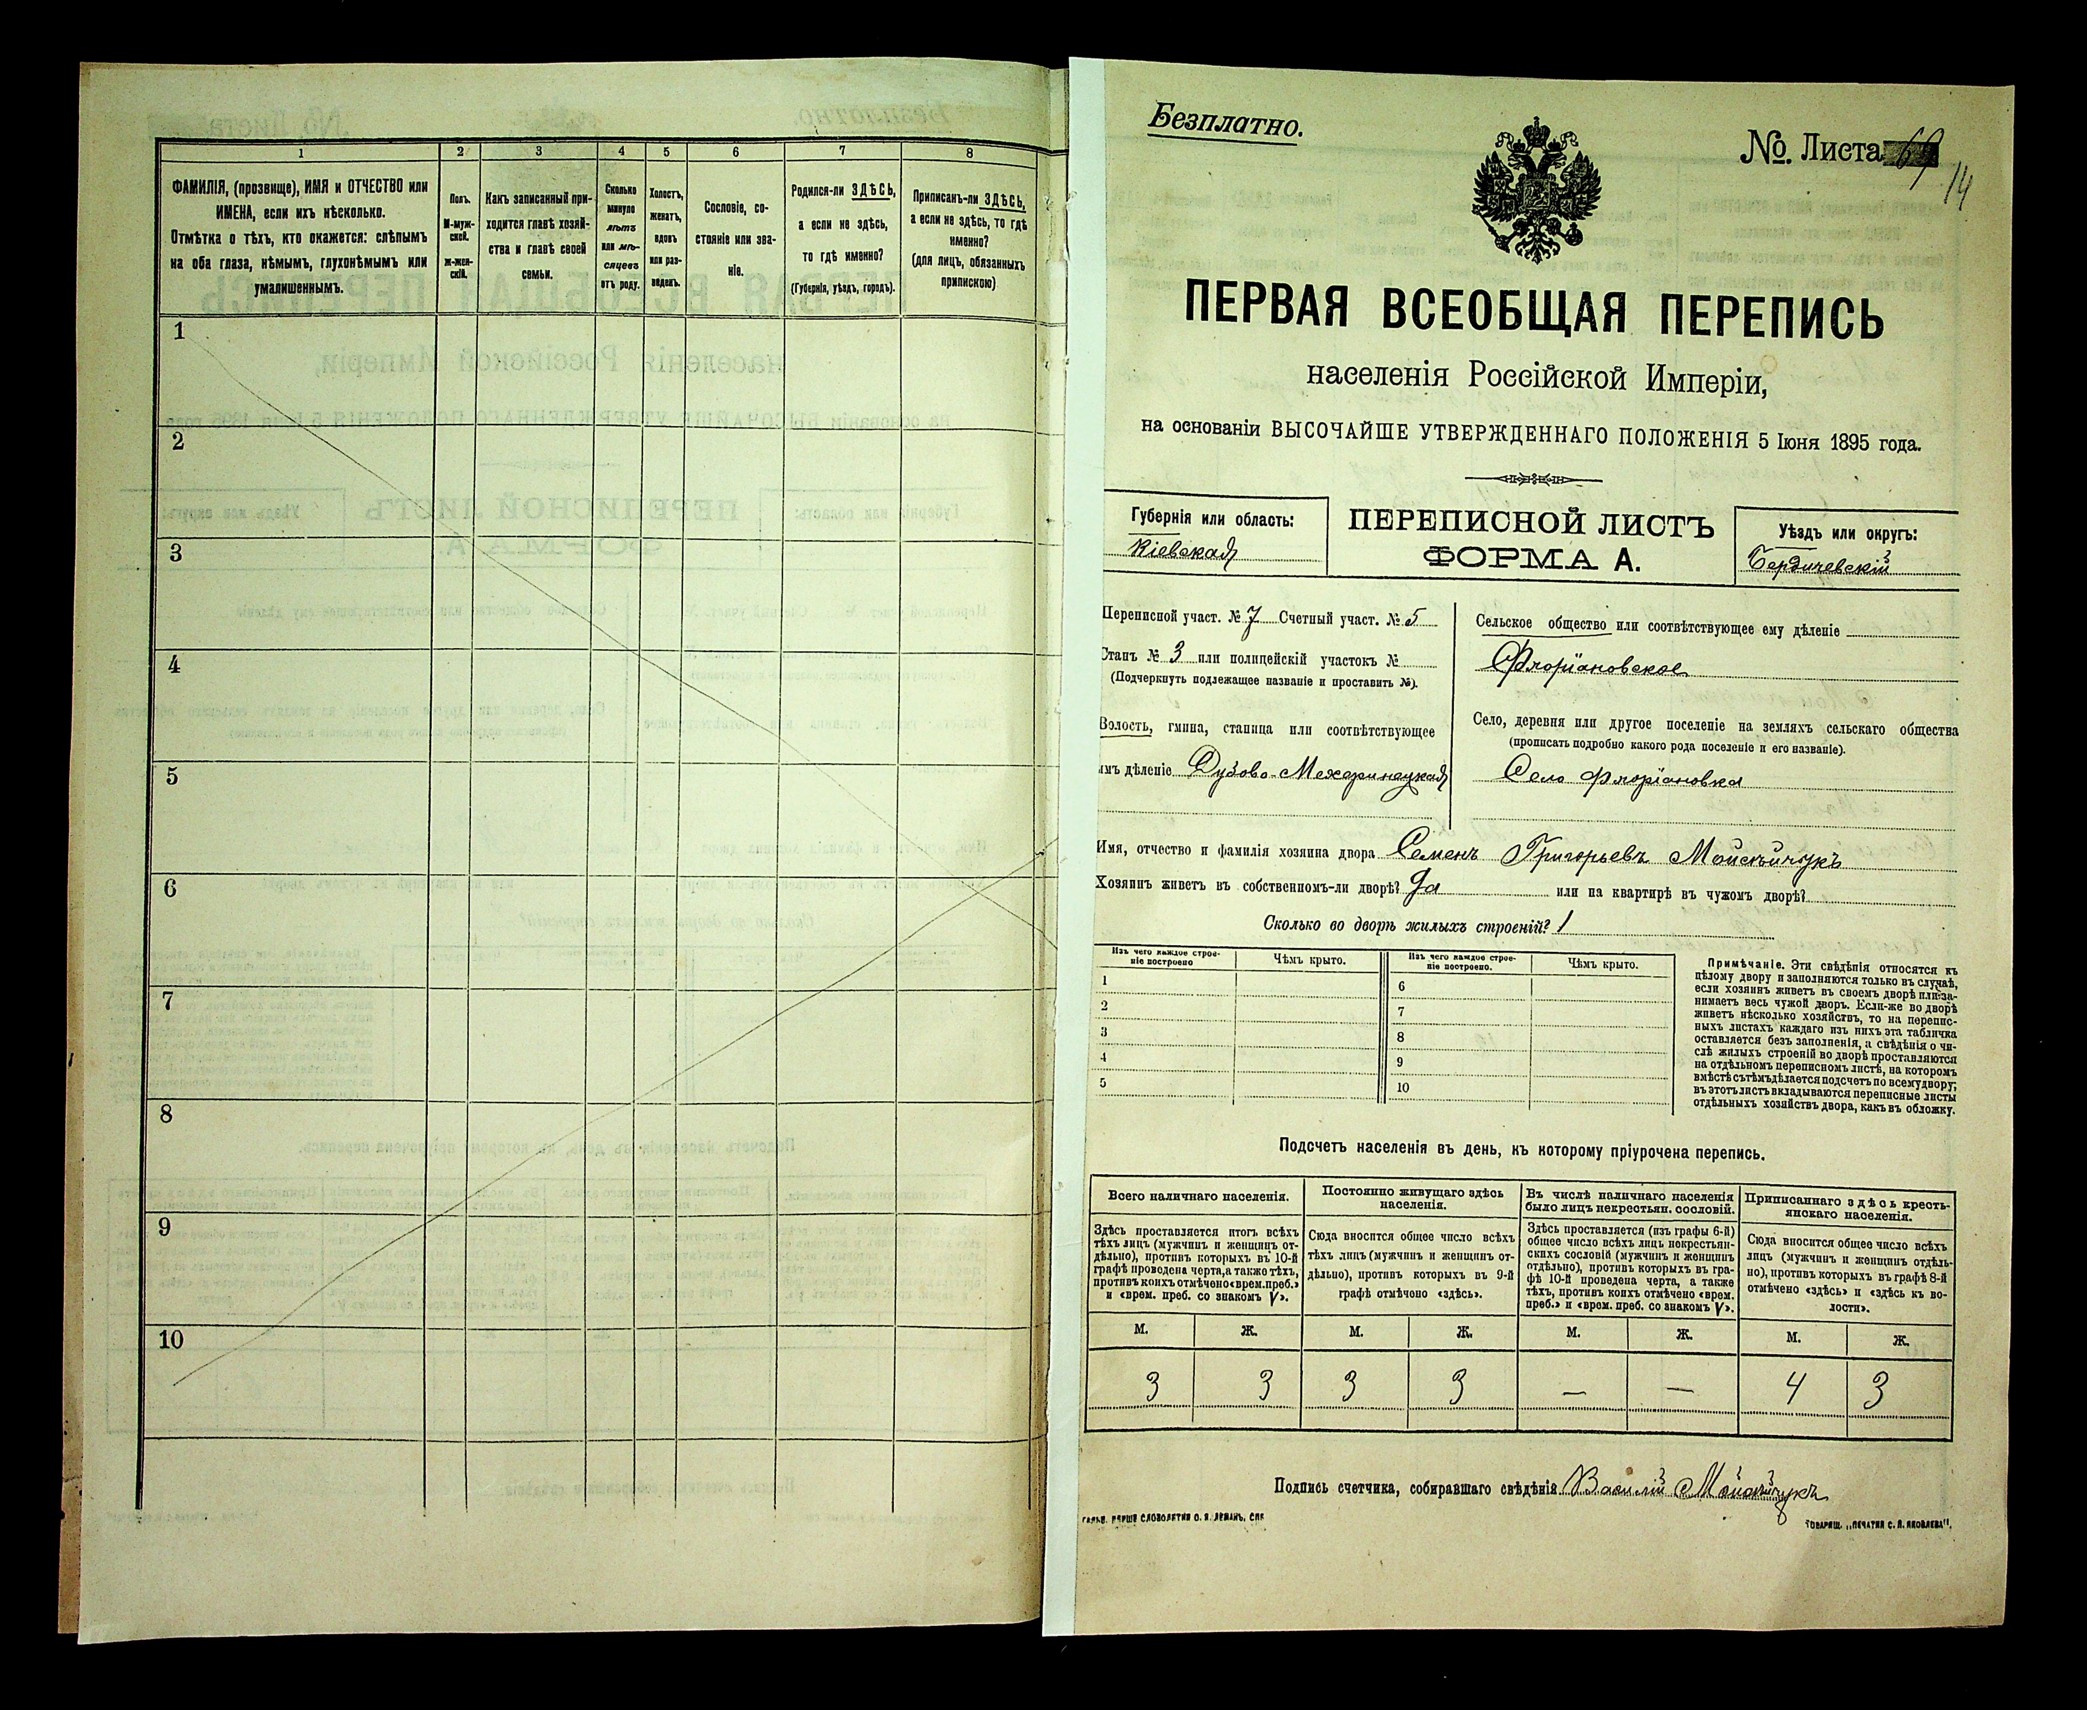 1 2 3 4 5 6 7 8
ФАМИЛІЯ, (прозвище), ИМЯ и ОТЧЕСТВО или
ИМЕНА, если ихъ нѣсколько.
Отмѣтка о тѣхъ, кто окажется: слѣпымъ
на оба глаза, нѣмымъ, глухонѣмымъ или
умалишеннымъ.
Полъ.
М-муж-
ской.
ж-жен-
скій.
Какъ записанный при-
ходится главѣ хозяй-
ства и главѣ своей
семьи.
Сколько
минуло
лѣтъ
или мѣ-
сяцевъ
отъ роду.
Холостъ,
женатъ,
вдовъ
или раз-
веденъ.
Сословіе, со-
стояніе или зва-
ніе.
Родился-ли ЗДѢСЬ,
а если не здѣсь,
то гдѣ именно?
(Губернія, уѣздъ, городъ).
Приписанъ-ли ЗДѢСЬ,
а если не здѣсь, то гдѣ
именно?
(для лицъ, обязанныхъ
припискою)
1
2
3
4
5
6
7
8
9
10
Безплатно.
№. Листа 69
14
ПЕРВАЯ ВСЕОБЩАЯ ПЕРЕПИСЬ
населенія Россійской Имперіи,
на основаніи ВЫСОЧАЙШЕ УТВЕРЖДЕННАГО ПОЛОЖЕНІЯ 5 Іюня 1895 года.
Губернія или область:
Кіевская
ПЕРЕПИСНОЙ ЛИСТЪ
ФОРМА А.
Уѣздъ или округъ:
Бердичевскій
Переписной участ. № 7 Счетный участ. № 5
Станъ № 3 или полицейскій участокъ №
(Подчеркнуть подлежащее названіе и проставить №).
Волость, гмина, станица или соотвѣтствующее
имъ дѣленіе Дубово-Махаринецкая
Сельское общество или соотвѣтствующее ему дѣленіе
Флоріановское
Село, деревня или другое поселеніе на земляхъ сельскаго общества
(прописать подробно какого рода поселеніе и его названіе).
Село Флоріановка
Имя, отчество и фамилія хозяина двора Семенъ Григорьевъ Мойсѣйчукъ
Хозяинъ живетъ въ собственномъ-ли дворѣ? Да или на квартирѣ въ чужомъ дворѣ?
Сколько во дворѣ жилыхъ строеній? 1
Изъ чего каждое строе-
ніе построено
Чѣмъ крыто.
Изъ чего каждое строе-
ніе построено.
Чѣмъ крыто.
1 6
2 7
3 8
4 9
5 10
Примѣчаніе. Эти свѣдѣнія относятся къ
цѣлому двору и заполняются только въ случаѣ,
если хозяинъ живетъ въ своемъ дворѣ или за-
нимаетъ весь чужой дворъ. Если-же во дворѣ
живетъ нѣсколько хозяйствъ, то на перепис-
ныхъ листахъ каждаго изъ нихъ эта табличка
оставляется безъ заполненія, а свѣдѣнія о чи-
слѣ жилыхъ строеній во дворѣ проставляются
на отдѣльномъ переписномъ листѣ, на которомъ
вмѣстѣ съ тѣмъ дѣлается подсчетъ по всему двору;
въ этотъ листъ вкладываются переписные листы
отдѣльныхъ хозяйствъ двора, какъ въ обложку.
Подсчетъ населенія въ день, къ которому пріурочена перепись.
Всего наличнаго населенія.
Здѣсь проставляется итогъ всѣхъ
тѣхъ лицъ (мужчинъ и женщинъ от-
дѣльно), противъ которыхъ въ 10-й
графѣ проведена черта, а также тѣхъ,
противъ коихъ отмѣчено «врем. преб.»
и «врем. преб. со знакомъ V».
Постоянно живущаго здѣсь
населенія.
Сюда вносится общее число всѣхъ
тѣхъ лицъ (мужчинъ и женщинъ от-
дѣльно), противъ которыхъ въ 9-й
графѣ отмѣчено «здѣсь».
Въ числѣ наличнаго населенія
было лицъ некрестьян. сословій.
Здѣсь проставляется (изъ графы 6-й)
общее число всѣхъ лицъ некрестьян-
скихъ сословій (мужчинъ и женщинъ
отдѣльно), противъ которыхъ въ гра-
фѣ 10-й проведена черта, а также
тѣхъ, противъ коихъ отмѣчено «врем.
преб.» и «врем. преб. со знакомъ V».
Приписаннаго здѣсь кресть-
янскаго населенія.
Сюда вносится общее число всѣхъ
лицъ (мужчинъ и женщинъ отдѣль-
но), противъ которыхъ въ графѣ 8-й
отмѣчено «здѣсь» и «здѣсь къ во-
лости».
М. Ж. М. Ж. М. Ж. М. Ж.
3 3 3 3 — — 4 3
Подпись счетчика, собиравшаго свѣдѣнія Василій Мойсѣйчукъ
СЛОВОЛИТНИ О. И. ЛЕМАНЪ, СПБ
ТОВАРИЩ. „ПЕЧАТНЯ С. П. ЯКОВЛЕВА".